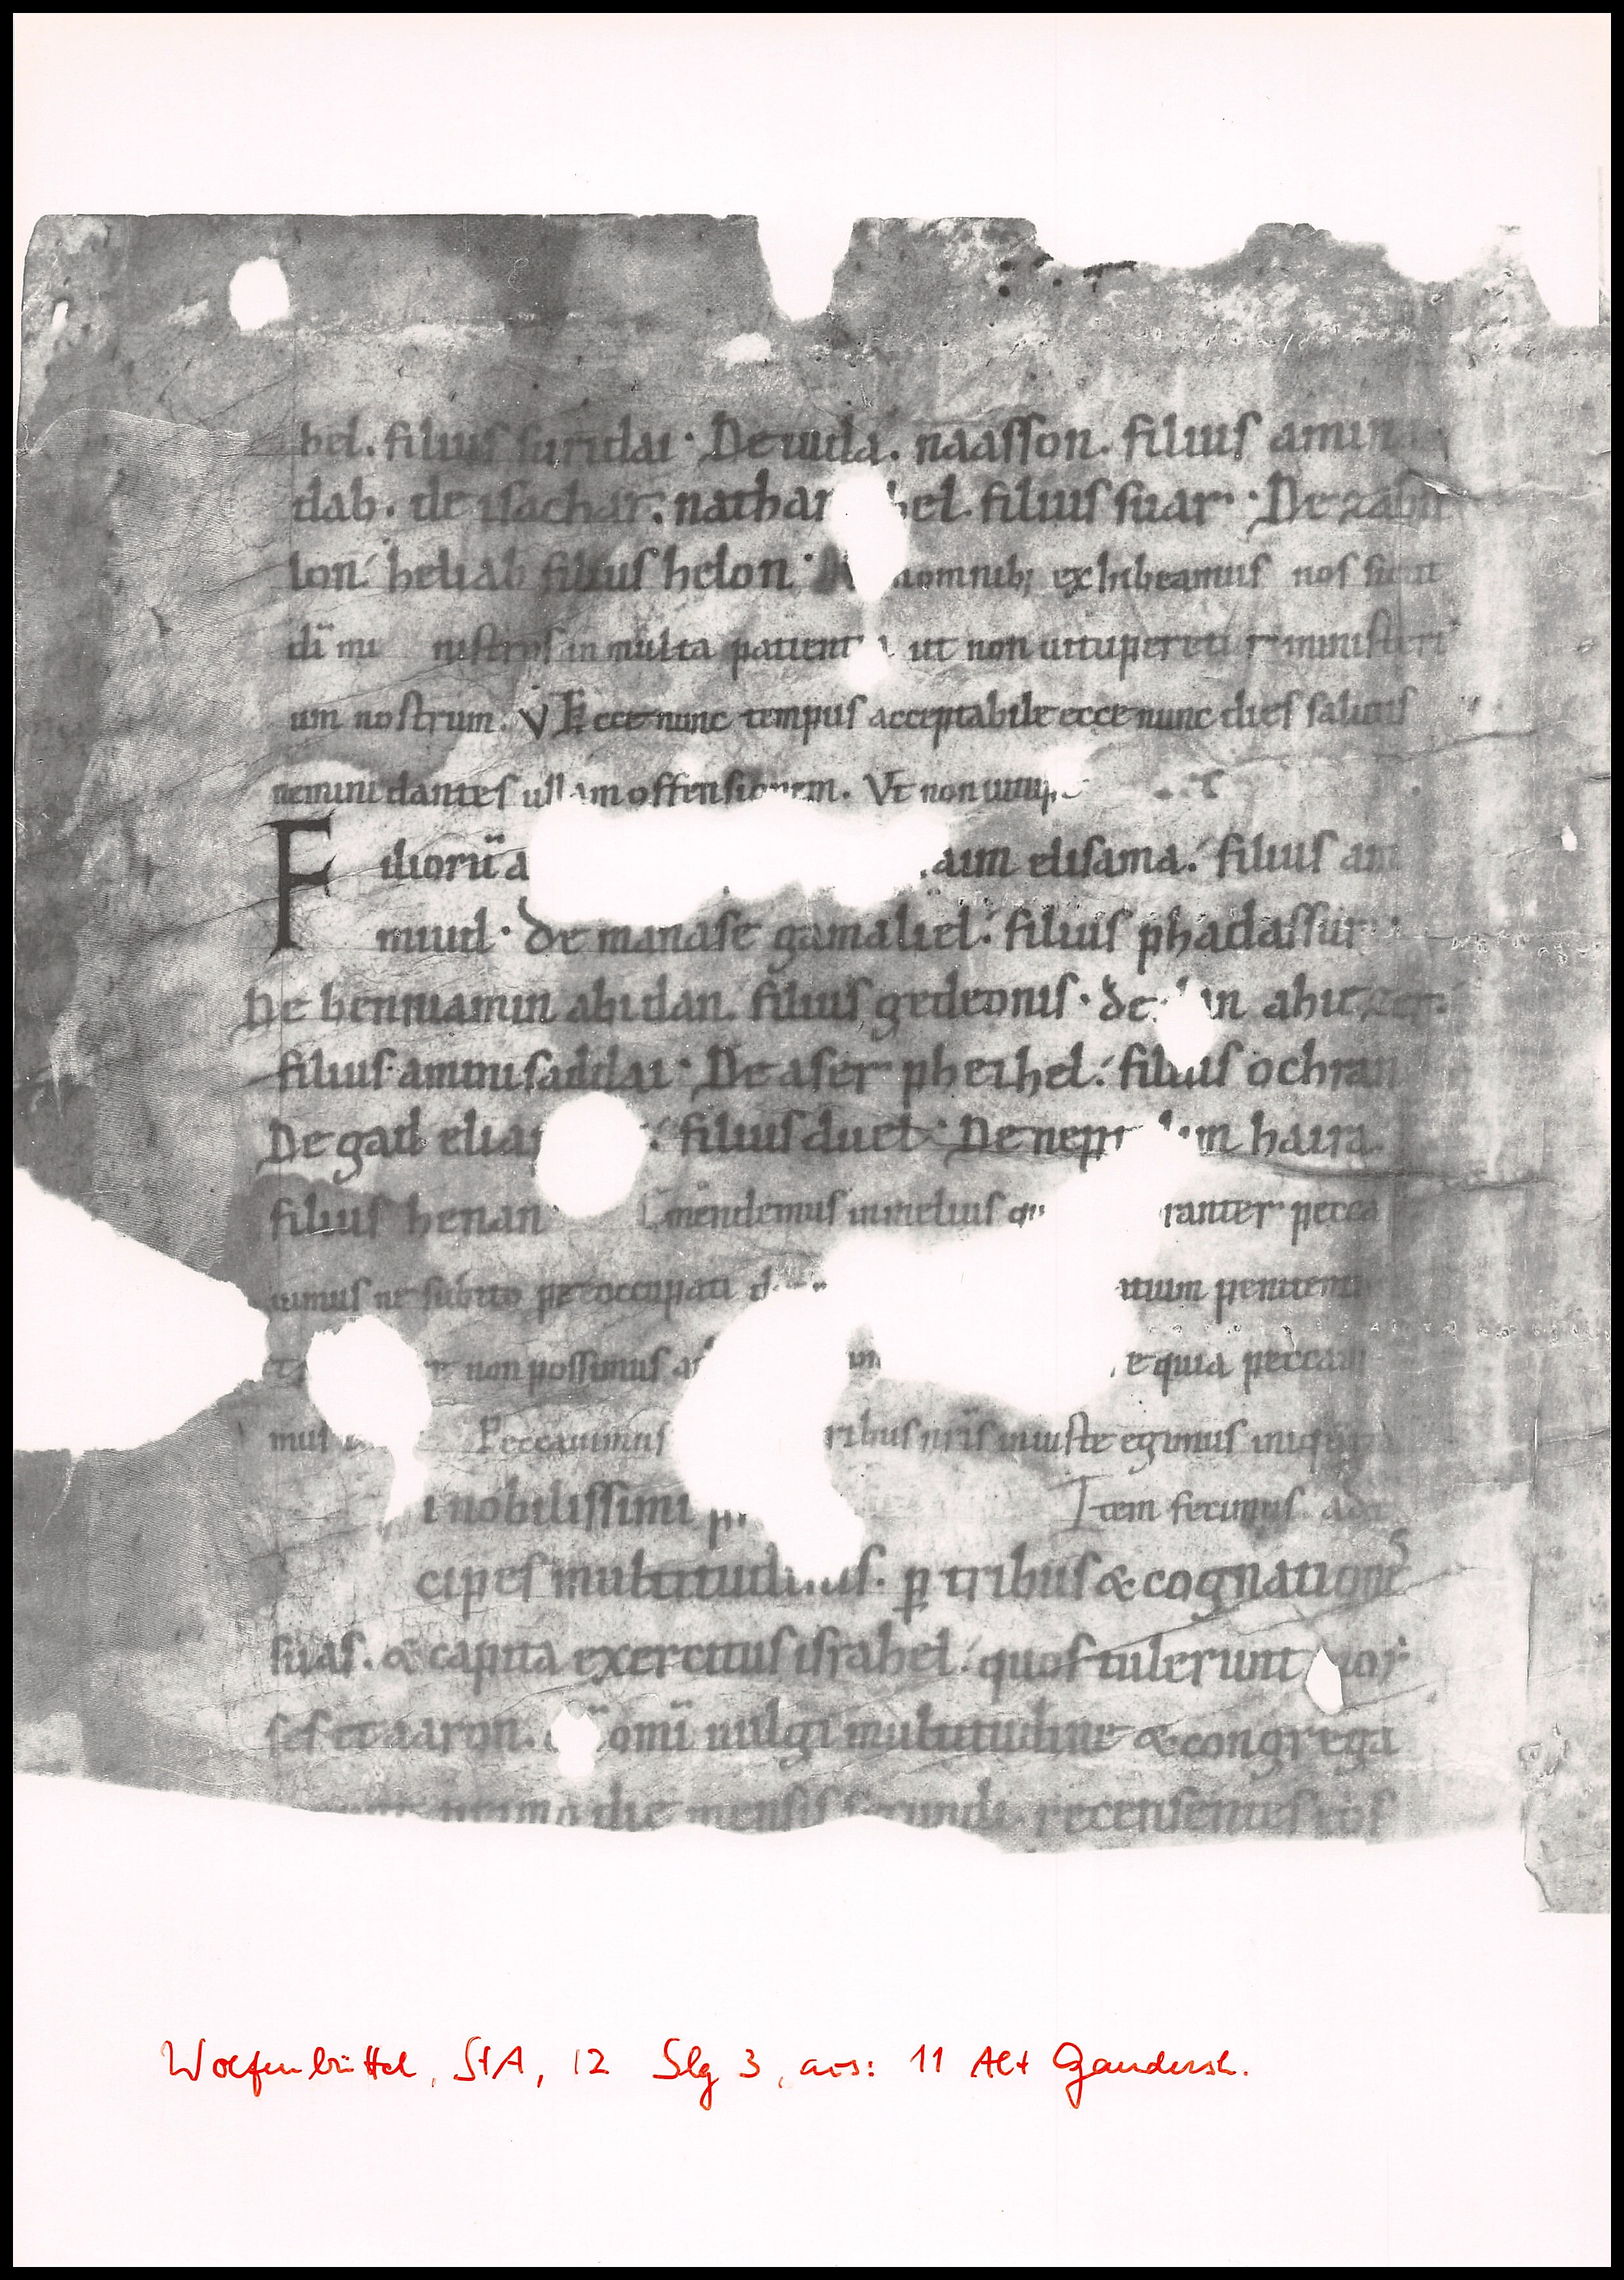 hel. filius suridai · De iuda. naasson. filius amin
dab. de isachar. nathan hel. filius suar · De zabu
lon heliab filius helon · In omnib; exhibeamus nos sicut
di mi nistros in multa patientia ut non uituperetur ministeri
um nostrum. V Ecce nunc tempus acceptabile ecce nunc dies salutis
nemini dantes ullam offensionem. Vt non uitup
Filiorū a aim elisama. filius am
miud · de manase gamaliel. filius phadassur
De beniamin abidan. filius gedeonis · de dan ahiezer.
filius amnisaddai · De aser phethel. filius ochran
De gad elia filius duel · De nept lim haira
filius henan Emendemus in melius qu ranter pecca
uimus ne subito preoccupati d tium peniten
non possimus e quia peccaui
mus Peccauimus ribus nris iniuste egimus iniq
i nobilissimi p Item fecimus.
cipes multitudinis. p tribus & cognation
suas. & capita exercitus israhel. quos tulerunt moy
ses et aaron. omi uulgi multitudine & congrega
primo die mensis secundi. recensentes eos
Wolfenbüttel, StA, 12 Slg 3, aus: 11 Alt Gandersh.